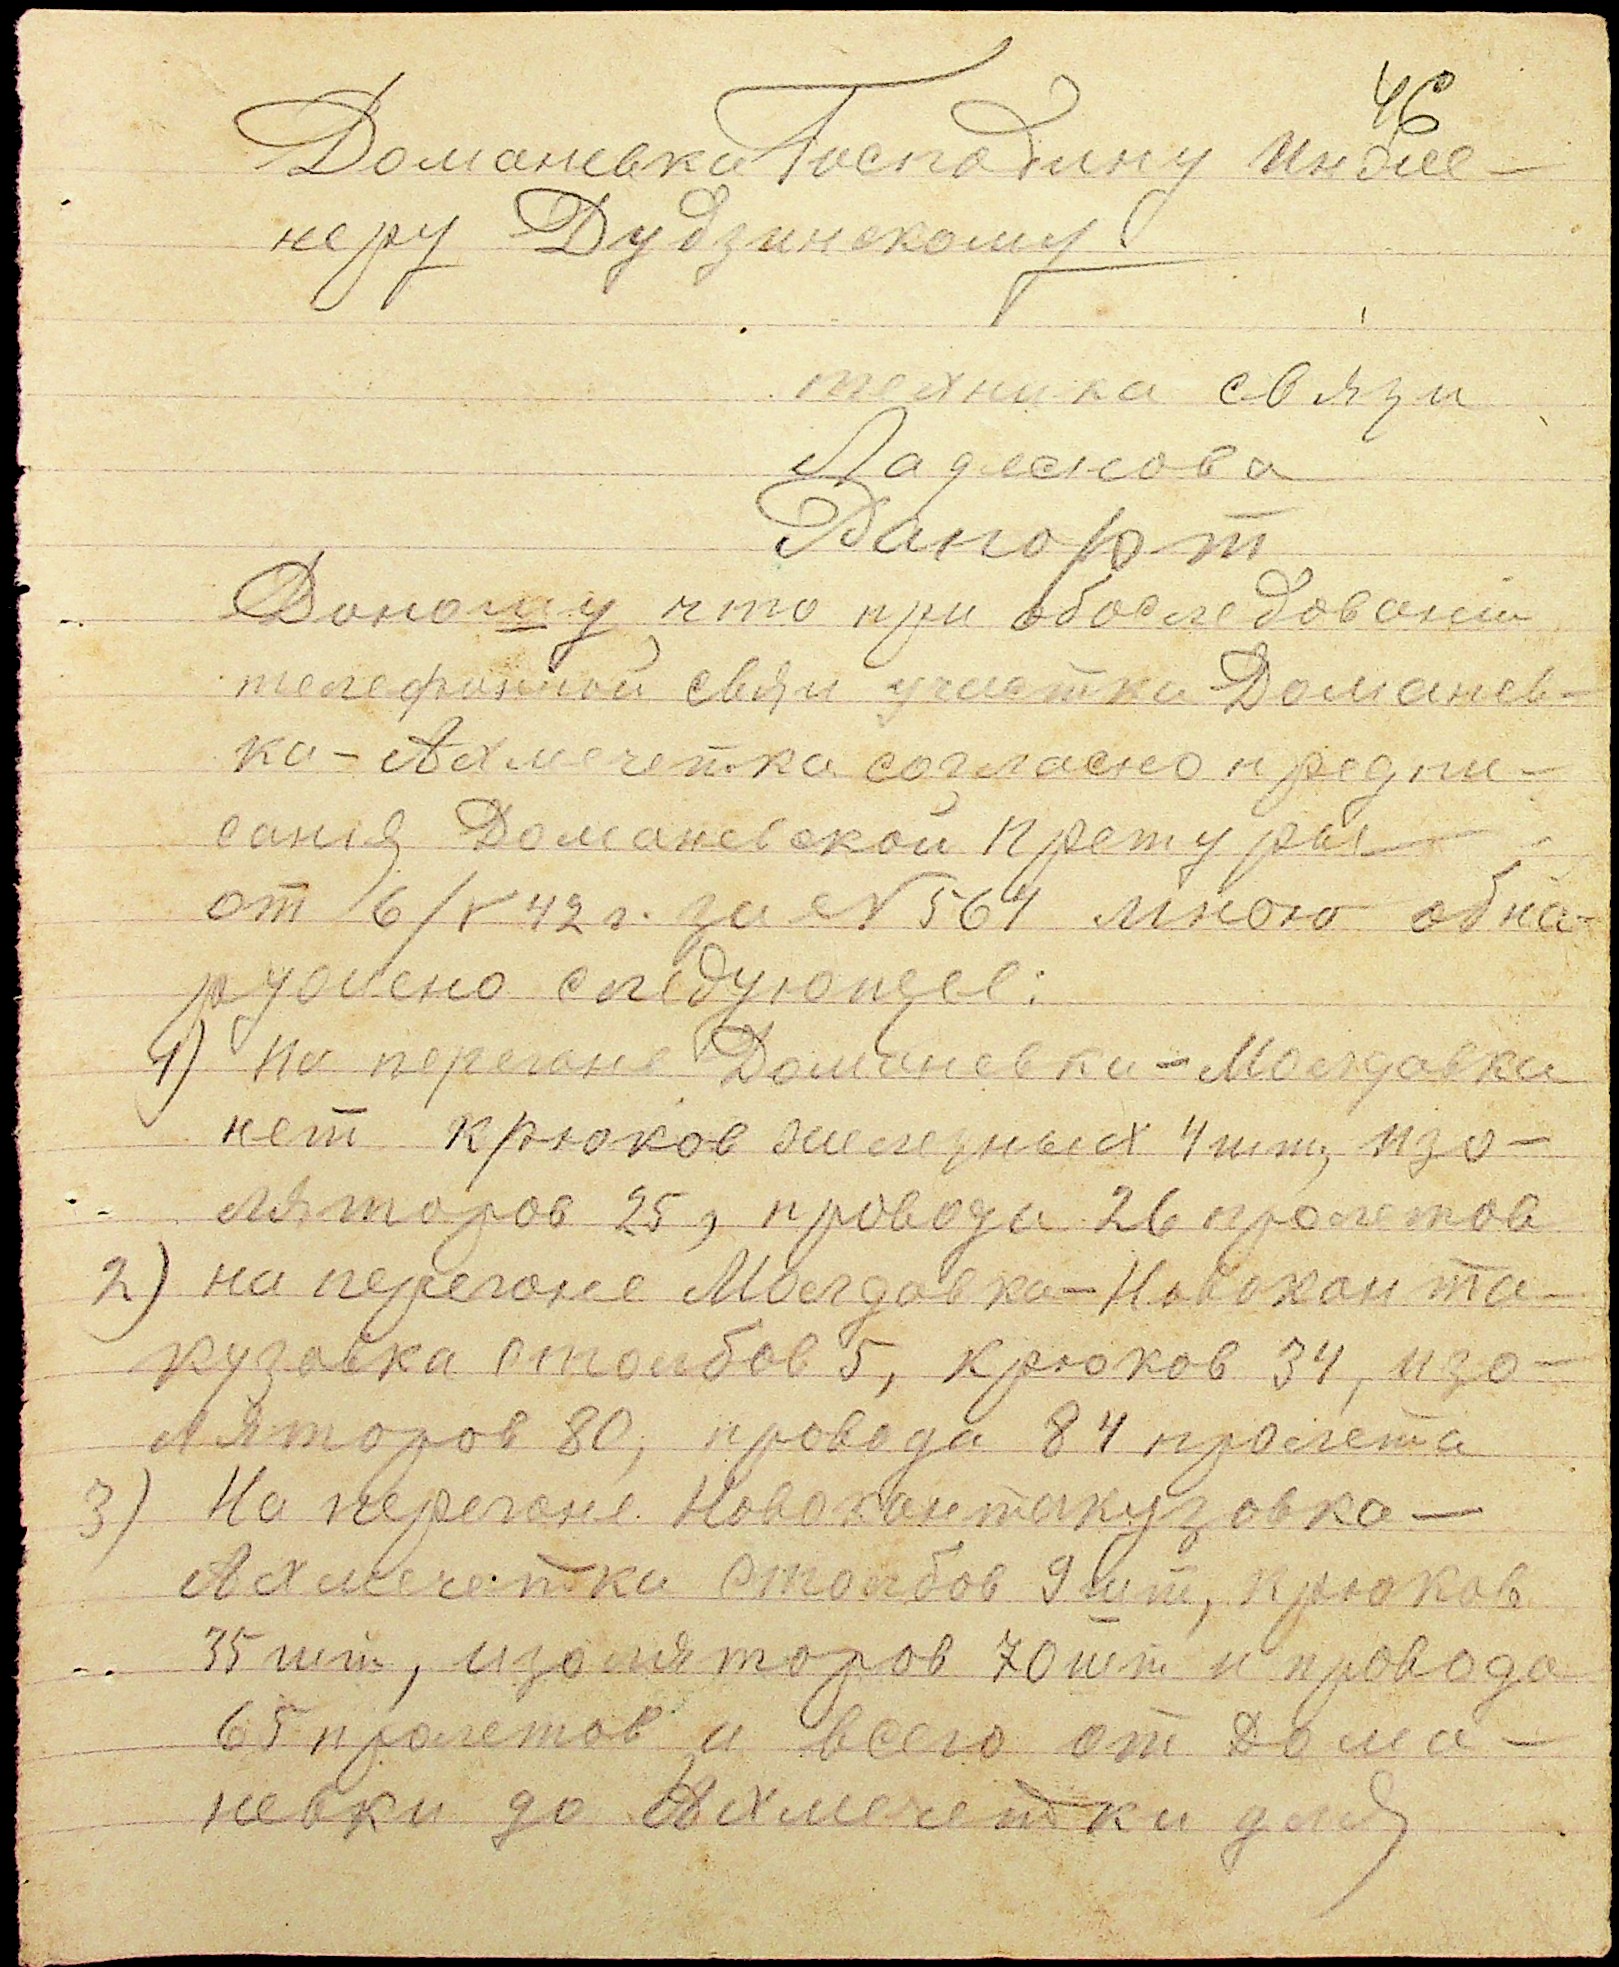 46
Доманевка Господину Инже-
неру Дудзинскому.
техника связи
Ладженова
Рапорт
Доношу что при обоследовании
телефонной связи участка Доманев-
ка-Ахмечетка согласно предпи-
сания Доманевской Претуры
от 6/V 42 г. за № 564 мною обна-
ружено следующее:
1) На перегоне Доманевка-Молдавка
нет крюков железных 4 шт, изо-
ляторов 25, провода 26 пролетов
2) на перегоне Молдавка-Новоканта-
кузовка столбов 5, крюков 34, изо-
ляторов 80, провода 84 пролета
3) На перегоне Новокантакузовка-
Ахмечетка столбов 9 шт, крюков
35 шт, изоляторов 70 шт и провода
65 пролетов и всего от Дома-
невки до Ахмечетки для